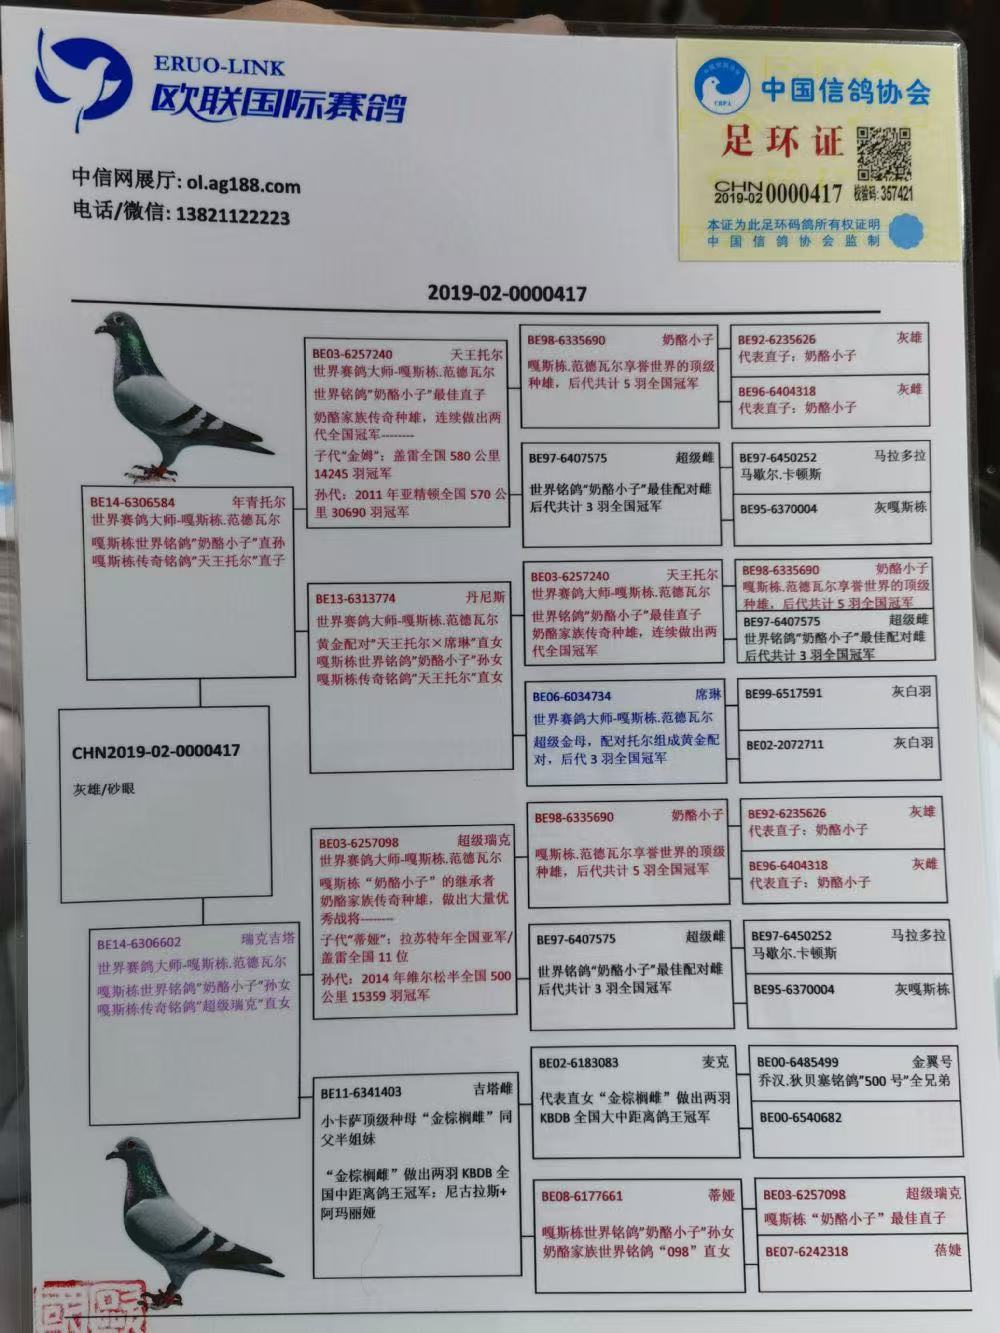 ERUO-LINK
欧联国际赛鸽
中信网展厅: ol.ag188.com
电话/微信: 13821122223
中国信鸽协会
CRPA
足环证
CHN
2019-02 0000417 校验码: 357421
本证为此足环码鸽所有权证明
中国信鸽协会监制
2019-02-0000417
BE14-6306584 年青托尔
世界赛鸽大师-嘎斯栋.范德瓦尔
嘎斯栋世界铭鸽"奶酪小子"直孙
嘎斯栋传奇铭鸽"天王托尔"直子
CHN2019-02-0000417
灰雄/砂眼
BE14-6306602 瑞克吉塔
世界赛鸽大师-嘎斯栋.范德瓦尔
嘎斯栋世界铭鸽"奶酪小子"孙女
嘎斯栋传奇铭鸽"超级瑞克"直女
BE03-6257240 天王托尔
世界赛鸽大师-嘎斯栋.范德瓦尔
世界铭鸽"奶酪小子"最佳直子
奶酪家族传奇种雄，连续做出两
代全国冠军--------
子代"金姆"：盖雷全国 580 公里
14245 羽冠军
孙代：2011 年亚精顿全国 570 公
里 30690 羽冠军
BE13-6313774 丹尼斯
世界赛鸽大师-嘎斯栋.范德瓦尔
黄金配对"天王托尔×席琳"直女
嘎斯栋世界铭鸽"奶酪小子"孙女
嘎斯栋传奇铭鸽"天王托尔"直女
BE03-6257098 超级瑞克
世界赛鸽大师-嘎斯栋.范德瓦尔
嘎斯栋“奶酪小子”的继承者
奶酪家族传奇种雄，做出大量优
秀战将--------
子代"蒂娅"：拉苏特年全国亚军/
盖雷全国 11 位
孙代：2014 年维尔松半全国 500
公里 15359 羽冠军
BE11-6341403 吉塔雌
小卡萨顶级种母“金棕榈雌”同
父半姐妹
“金棕榈雌”做出两羽 KBDB 全
国中距离鸽王冠军：尼古拉斯+
阿玛丽娅
BE98-6335690 奶酪小子
嘎斯栋.范德瓦尔享誉世界的顶级
种雄，后代共计 5 羽全国冠军
BE97-6407575 超级雌
世界铭鸽"奶酪小子"最佳配对雌
后代共计 3 羽全国冠军
BE03-6257240 天王托尔
世界赛鸽大师-嘎斯栋.范德瓦尔
世界铭鸽"奶酪小子"最佳直子
奶酪家族传奇种雄，连续做出两
代全国冠军
BE06-6034734 席琳
世界赛鸽大师-嘎斯栋.范德瓦尔
超级金母，配对托尔组成黄金配
对，后代 3 羽全国冠军
BE98-6335690 奶酪小子
嘎斯栋.范德瓦尔享誉世界的顶级
种雄，后代共计 5 羽全国冠军
BE97-6407575 超级雌
世界铭鸽"奶酪小子"最佳配对雌
后代共计 3 羽全国冠军
BE02-6183083 麦克
代表直女“金棕榈雌”做出两羽
KBDB 全国大中距离鸽王冠军
BE08-6177661 蒂娅
嘎斯栋世界铭鸽"奶酪小子"孙女
奶酪家族世界铭鸽“098”直女
BE92-6235626 灰雄
代表直子：奶酪小子
BE96-6404318 灰雌
代表直子：奶酪小子
BE97-6450252 马拉多拉
马歇尔.卡顿斯
BE95-6370004 灰嘎斯栋
BE98-6335690 奶酪小子
嘎斯栋.范德瓦尔享誉世界的顶级
种雄，后代共计 5 羽全国冠军
BE97-6407575 超级雌
世界铭鸽"奶酪小子"最佳配对雌
后代共计 3 羽全国冠军
BE99-6517591 灰白羽
BE02-2072711 灰白羽
BE92-6235626 灰雄
代表直子：奶酪小子
BE96-6404318 灰雌
代表直子：奶酪小子
BE97-6450252 马拉多拉
马歇尔.卡顿斯
BE95-6370004 灰嘎斯栋
BE00-6485499 金翼号
乔汉.狄贝塞铭鸽"500 号"全兄弟
BE00-6540682
BE03-6257098 超级瑞克
嘎斯栋“奶酪小子”最佳直子
BE07-6242318 蓓婕